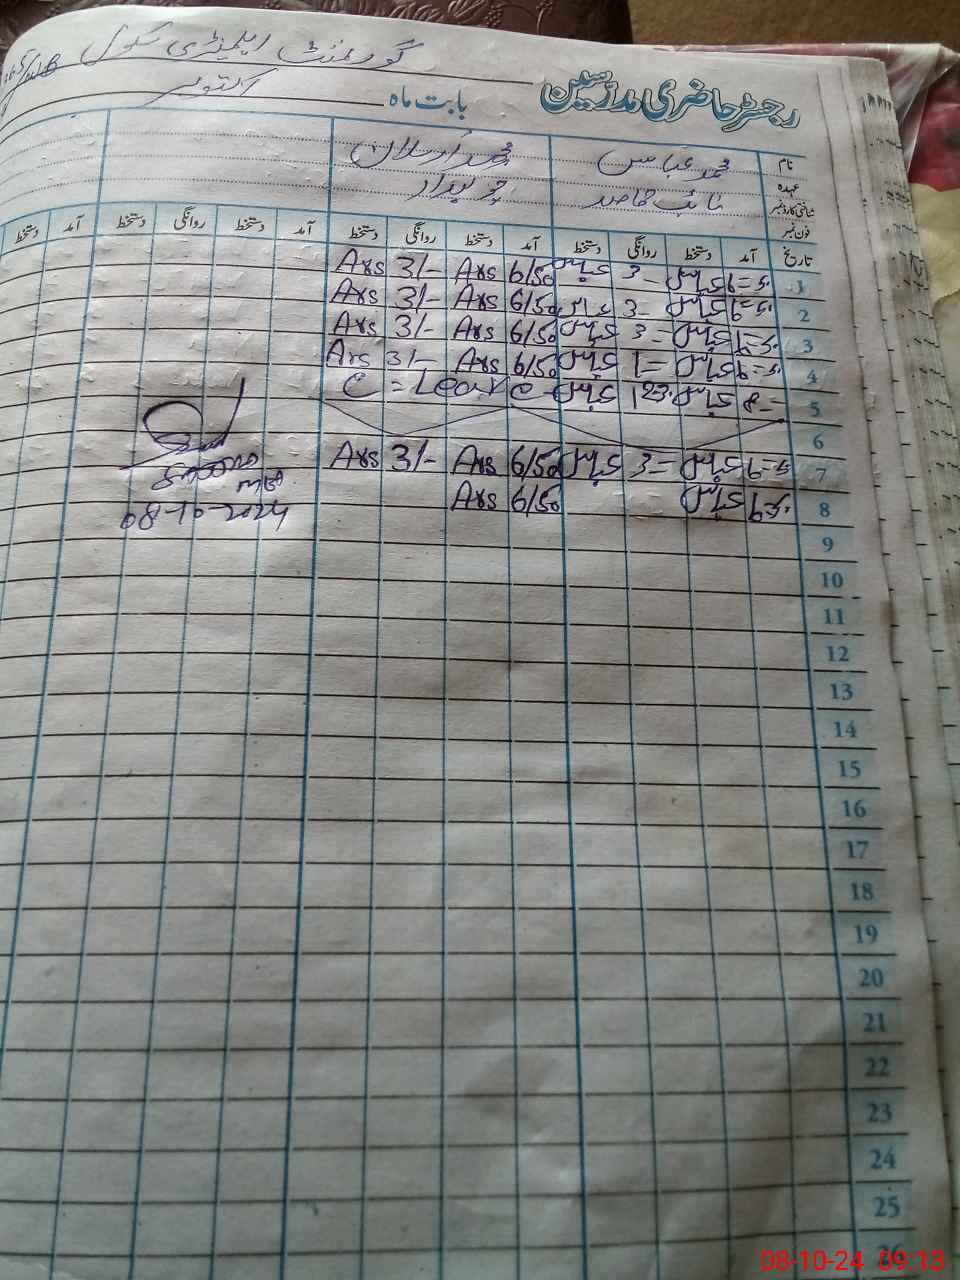 گورنمنٹ ایلیمنٹری سکول
رجسٹر حاضری مدرسین بابت ماہ اکتوبر
نام محمد عباس محمد ارسلان
عہدہ نائب قاصد چوکیدار
شناختی کارڈ نمبر
فون نمبر
تاریخ آمد دستخط روانگی دستخط آمد دستخط روانگی دستخط آمد دستخط روانگی دستخط آمد دستخط
1 عباس 3 عباس 6/50 Ars 3/- Ars
2 عباس 3 عباس 6/50 Ars 3/- Ars
3 عباس 3 عباس 6/50 Ars 3/- Ars
4 عباس 1 عباس 6/50 Ars 3/- Ars
5 8 عباس عباس C = Leave
6
7 عباس 3 عباس 6/50 Ars 3/- Ars
8 عباس 6/50 Ars
08-10-2024
9
10
11
12
13
14
15
16
17
18
19
20
21
22
23
24
25
26
08-10-24 09:13